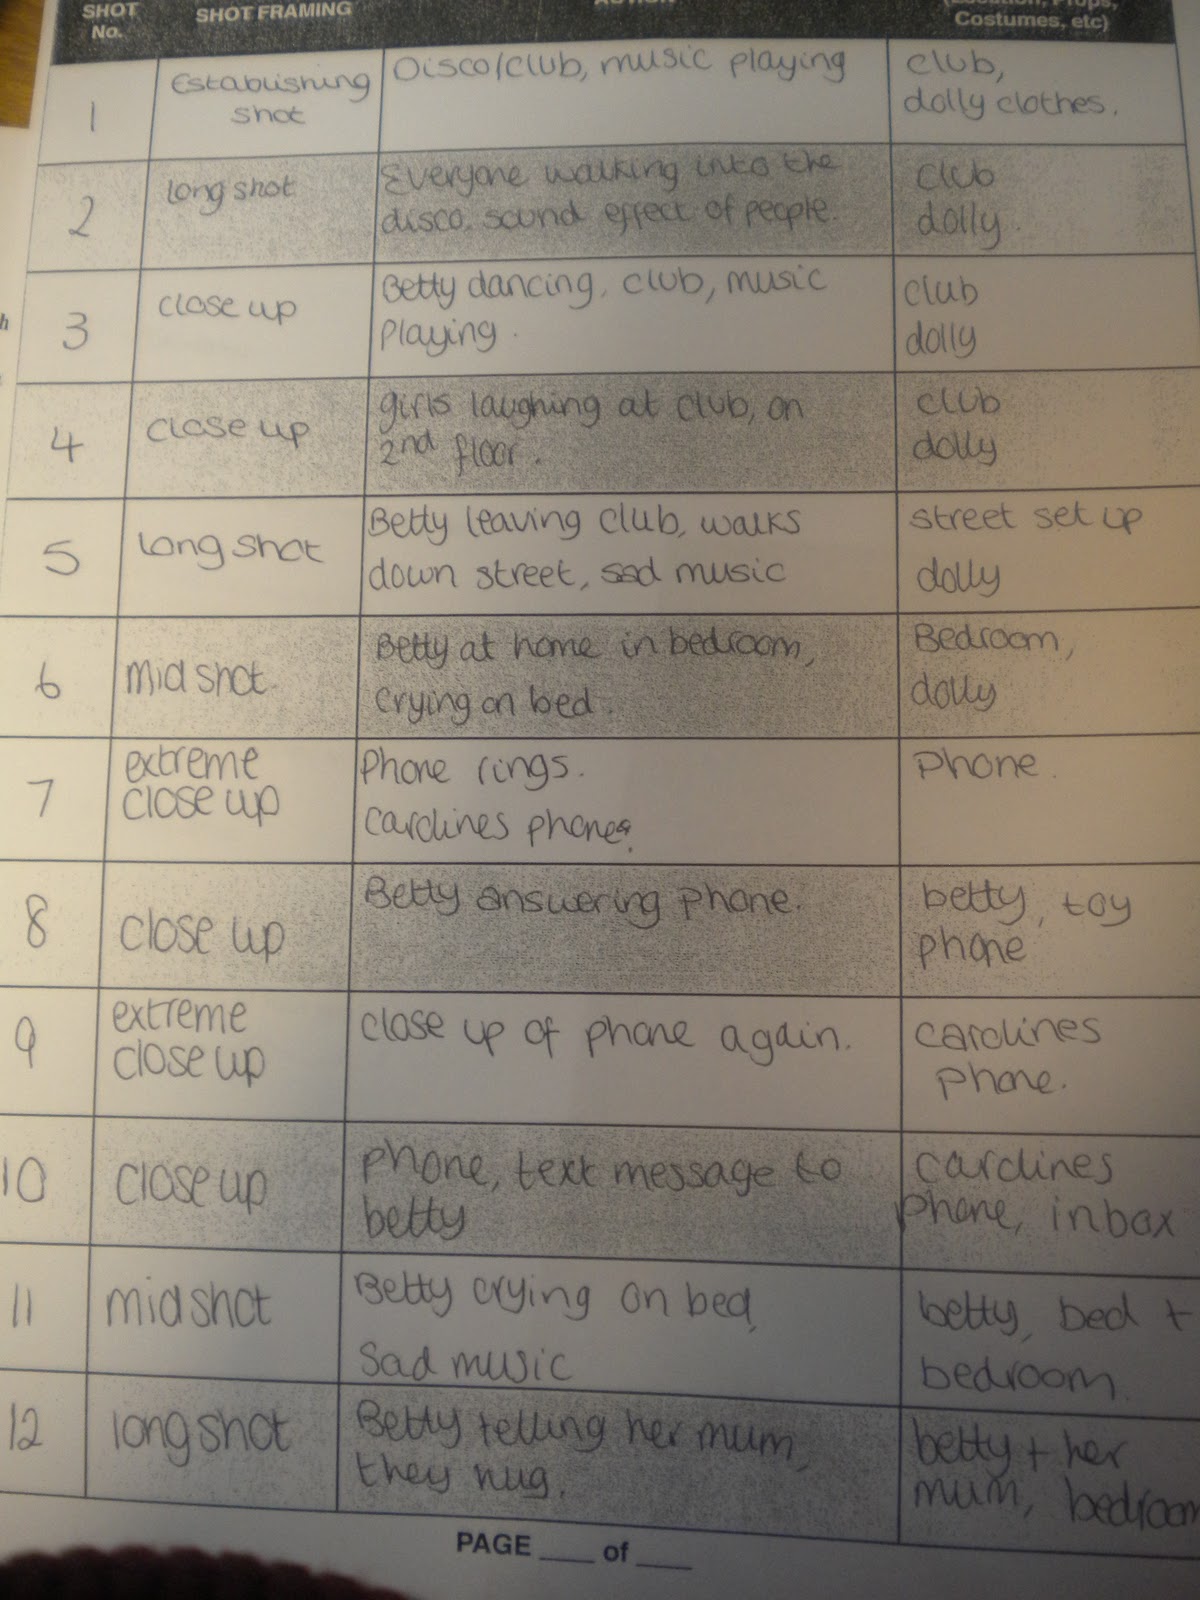 SHOT
No.
SHOT FRAMING
Costumes, etc)
1
Establishing
shot
Disco/club, music playing
club,
dolly clothes.
2
long shot
Everyone walking into the
disco. sound effect of people.
club
dolly.
3
close up
Betty dancing, club, music
Playing.
club
dolly
4
close up
girls laughing at club, on
2nd floor.
club
dolly
5
long shot
Betty leaving club, walks
down street, sad music
street set up
dolly
6
mid shot
Betty at home in bedroom,
crying on bed.
Bedroom,
dolly
7
extreme
close up
Phone rings.
Carolines phone.
Phone.
8
close up
Betty answering phone.
betty, toy
phone
9
extreme
close up
close up of phone again.
carolines
phone.
10
close up
phone, text message to
betty
carolines
phone, inbox
11
mid shot
Betty crying on bed,
Sad music
betty, bed +
bedroom.
12
long shot
Betty telling her mum,
they hug.
betty + her
mum, bedroom
PAGE ___ of ___